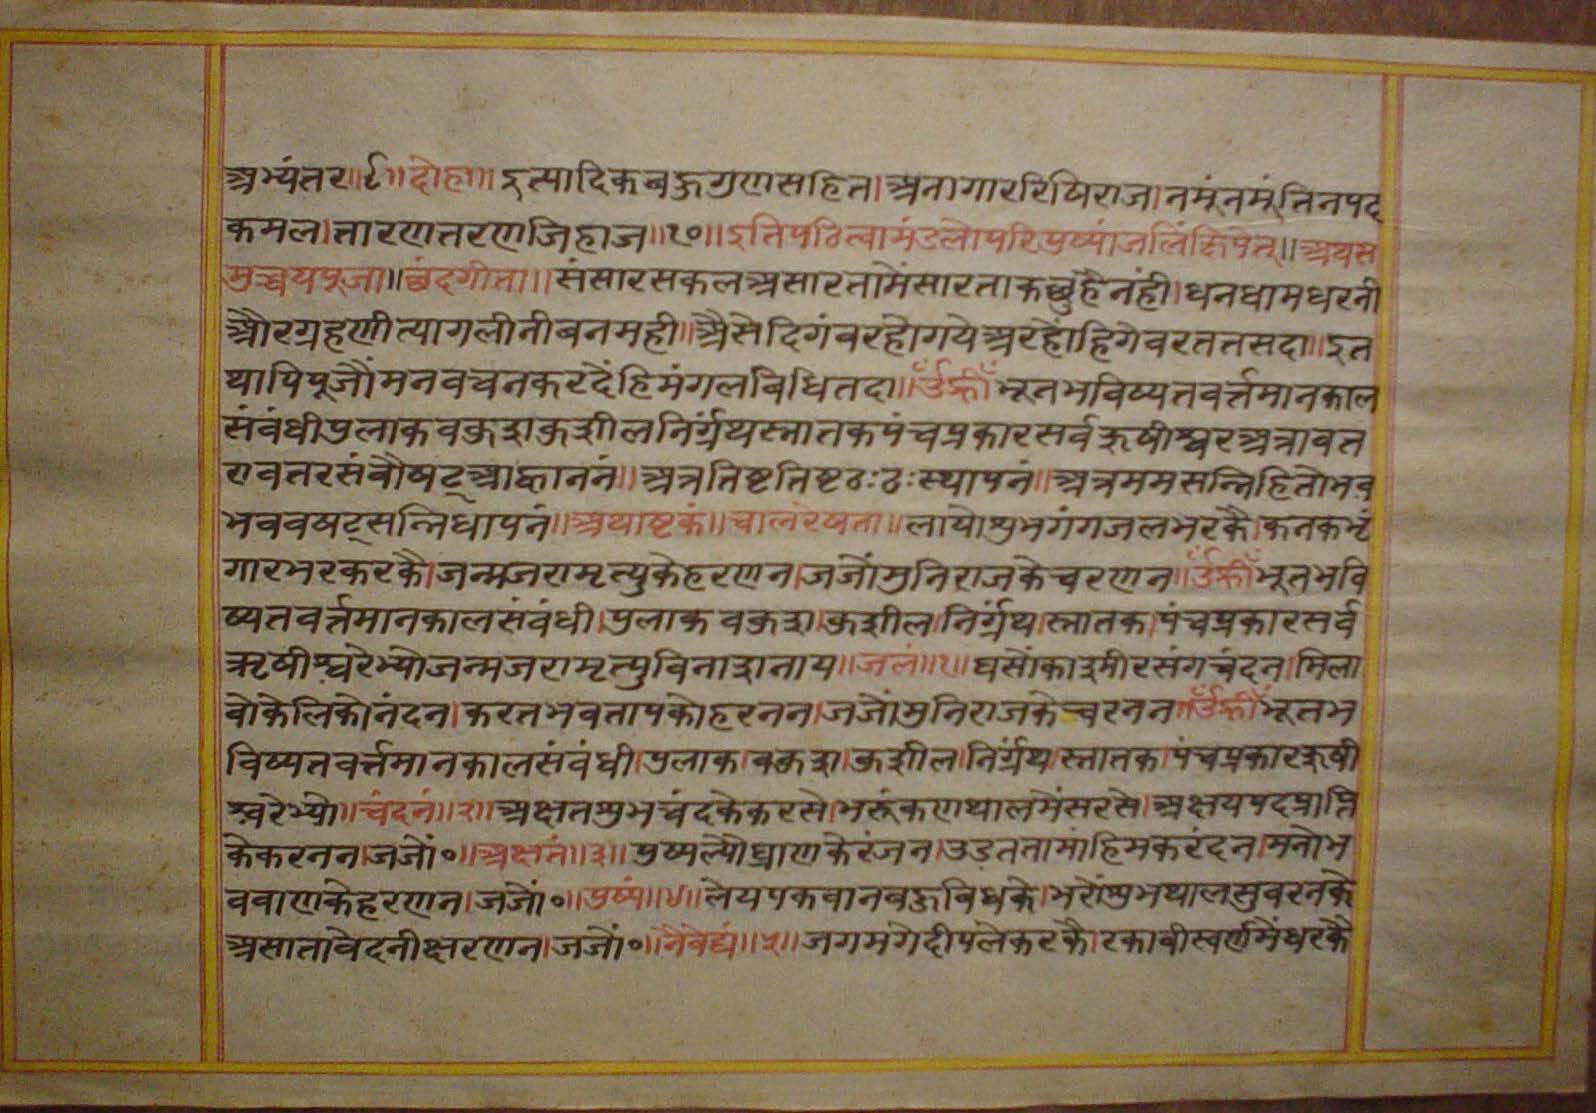 अभ्यंतर॥९॥दोहा॥इत्यादिकबहुगुणसहित।अनागाररिषिराज।नमूंनमूंतिनपद
कमल।तारणतरणजिहाज॥१०॥इतिपठित्वामंडलोपरिपुष्पांजलिंक्षिपेत्॥अथस
मुच्चयपूजा॥छंदगीता॥संसारसकलअसारतामेंसारताकछुहैनंही।धनधामधरनी
औरग्रहणीत्यागलीनीबनमही॥अैसेदिगंबरहोगयेअरहोंहिगेवरततसदा॥इत
थापिपूजौंमनवचनकरदेंहिमंगलबिधितदा॥ॐह्रीँभूतभविष्यतवर्त्तमानकाल
संबंधीपुलाकवकुशकुशीलनिर्ग्रंथस्नातकपंचप्रकारसर्वऋषीश्वरअत्रावत
रावतरसंवौषट्आह्वाननं॥अत्रतिष्टतिष्टठःठःस्थापनं॥अत्रममसन्निहितोभव
भववषट्सन्निधापनं॥अथाष्टकं॥चालरेषता॥लायोशुभगंगजलभरकै।कनकभृं
गारभरकरकै।जन्मजरामृत्युकेहरणन।जजोंमुनिराजकेचरणन॥ॐह्रीँभूतभवि
ष्यतवर्त्तमानकालसंबंधी।पुलाकवकुश।कुशील।निर्ग्रंथ।स्नातक।पंचप्रकारसर्व
ऋषीश्वरेभ्योजन्मजरामृत्युविनाशनाय॥जलं॥१॥घसोंकाश्मीरसंगचंदन।मिला
वोंकेलिकोनंदन।करतभवतापकोहरनन।जजोंमुनिराजकेचरनन॥ॐह्रीँभूतभ
विष्यतवर्त्तमानकालसंबंधी।पुलाक।वकुश।कुशील।निर्ग्रंथ।स्नातक।पंचप्रकारऋषी
श्वरेभ्यो॥चंदनं॥२॥अक्षतशुभचंदकेकरसे।भरूंकणथालमेंसरसे।अक्षयपदप्राप्ति
केकरनन।जजों॰॥अक्षतं॥३॥पुष्पल्यौघ्राणकेरंजन।उडततामांहिमकरंदन।मनोभ
ववाणकेहरणन।जजों॰॥पुष्पं॥४॥लेयपकवानबहुबिधके।भरोंशुभथालसुवरनके
असातावेदनीक्षरणन।जजों॰॥नैवेद्यं॥५॥जगमगेदीपलेकरकै।रकाबीस्वर्णमेंधरकै